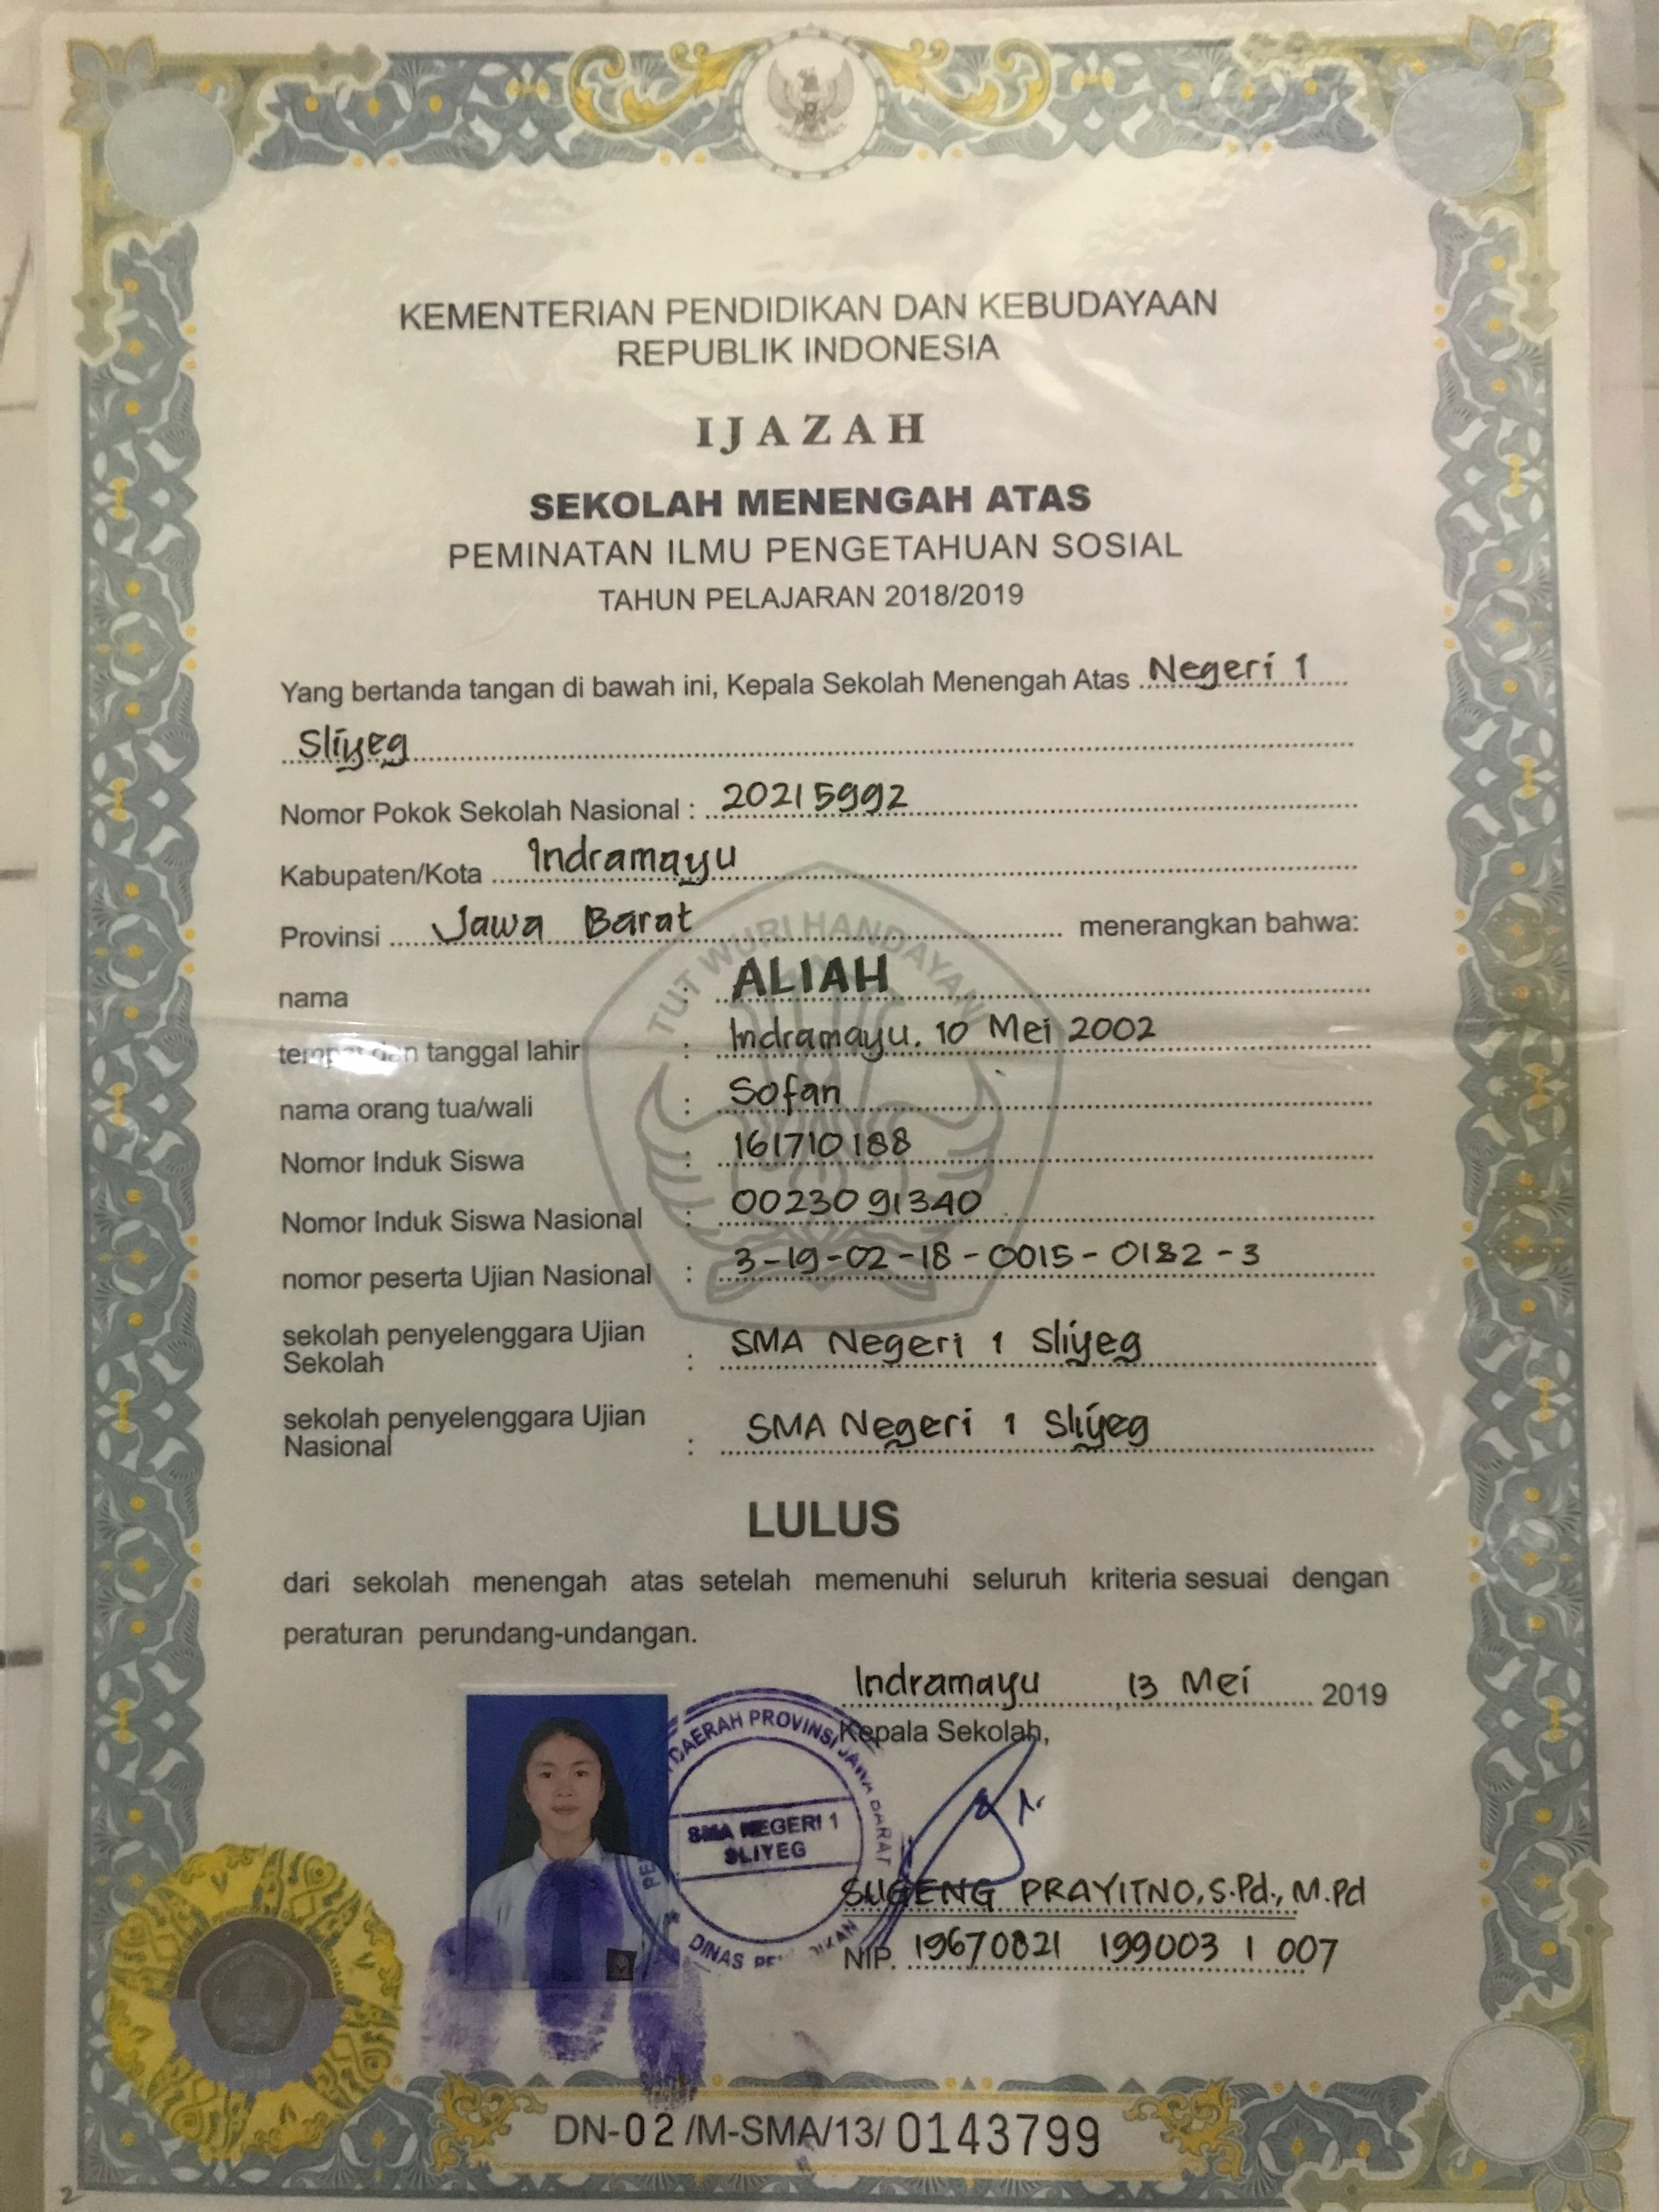 KEMENTERIAN PENDIDIKAN DAN KEBUDAYAAN
REPUBLIK INDONESIA
IJAZAH
SEKOLAH MENENGAH ATAS
PEMINATAN ILMU PENGETAHUAN SOSIAL
TAHUN PELAJARAN 2018/2019
Yang bertanda tangan di bawah ini, Kepala Sekolah Menengah Atas Negeri 1
Sliyeg
Nomor Pokok Sekolah Nasional : 20215992
Kabupaten/Kota Indramayu
Provinsi Jawa Barat menerangkan bahwa:
TUT WURI HANDAYANI
nama : ALIAH
tempat dan tanggal lahir : Indramayu, 10 Mei 2002
nama orang tua/wali : Sofan
Nomor Induk Siswa : 161710188
Nomor Induk Siswa Nasional : 0023091340
nomor peserta Ujian Nasional : 3-19-02-18-0015-0182-3
sekolah penyelenggara Ujian
Sekolah : SMA Negeri 1 Sliyeg
sekolah penyelenggara Ujian
Nasional : SMA Negeri 1 Sliyeg
LULUS
dari sekolah menengah atas setelah memenuhi seluruh kriteria sesuai dengan
peraturan perundang-undangan.
Indramayu, 13 Mei 2019
Kepala Sekolah,
DAERAH PROVINSI JAWA BARAT
SMA NEGERI 1
SLIYEG
DINAS PENDIDIKAN
SUGENG PRAYITNO, S.Pd., M.Pd
NIP. 19670821 199003 1 007
DN-02/M-SMA/13/0143799
2